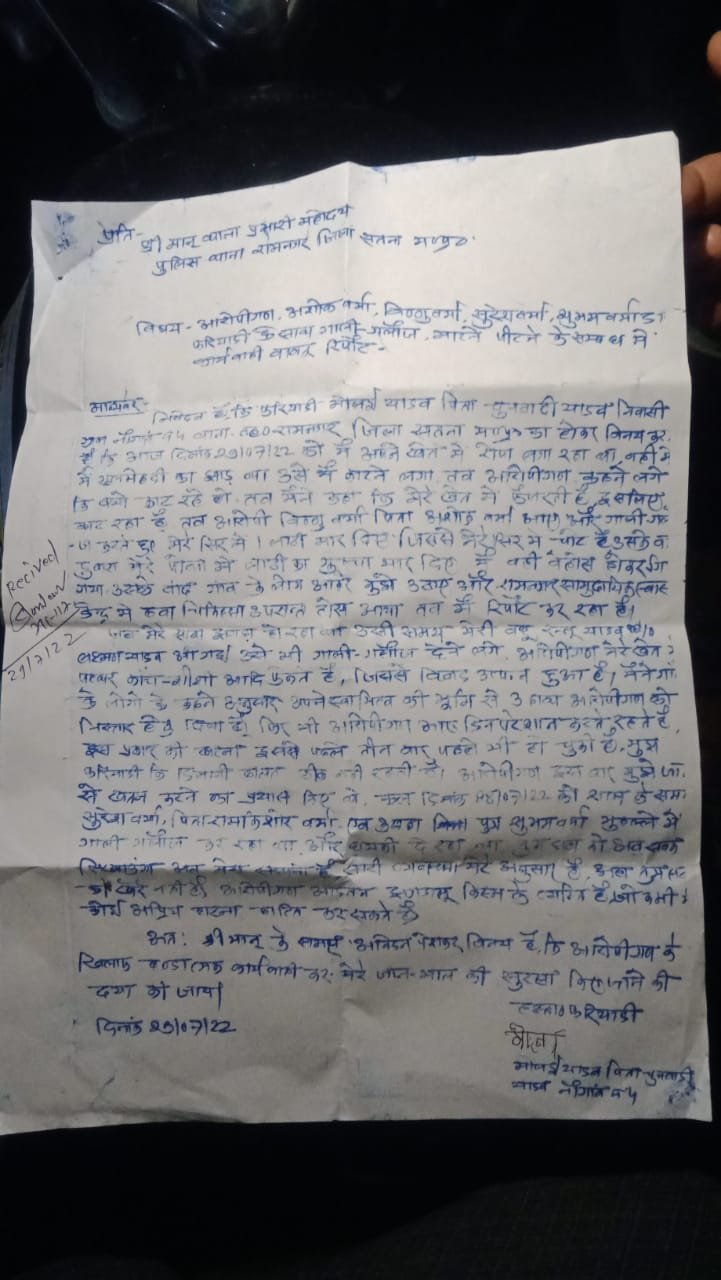 प्रति-
श्री मान् थाना प्रभारी महोदय
पुलिस थाना रामनगर जिला सतना म०प्र०
विषय - आरोपीगण. अशोक वर्मा, विष्णु वर्मा, सुरेश वर्मा, शुभम वर्मा
फरियादी के साथ गाली-गलौज, मारने पीटने के सम्बंध में
कार्यवाही वावत् रिपोर्ट -
मान्यवर,
निवेदन है, कि फरियादी यादव पिता यादव निवासी
ग्राम नौगांव थाना रामनगर जिला सतना म०प्र० का होकर विनय कर
है कि आज दिनांक 29/07/22 को मैं अपने खेत में रोपा लगा रहा था, वहीं
में का झाड़ था उसे मैं काटने लगा. तब आरोपीगण कहने लगे
कि क्यों काट रहे हो. तब मैंने कहा कि मेरे खेत में है, इसलिए
काट रहा हूँ. तब आरोपी विष्णु वर्मा पिता अशोक वर्मा आए और गाली ग
करते हुए मेरे सिर में 1 लाठी मार दिए जिससे मेरे सिर में चोट है उसके
मेरे सीना में लाठी का मार दिए मैं वहीं बेहोस होकर गि
गया. उसके बाद गांव के लोग आकर मुझे उठाए और रामनगर सामुदायिक स्वास
केन्द्र में दवा चिकित्सा उपरान्त होस आया तब मैं रिपोर्ट कर रहा हूँ।
जब मेरे साथ झगड़ा हो रहा था उसी समय मेरी बहू यादव
लक्ष्मण यादव आ गई। उसे भी गाली-गलौज देने लगे. आरोपीगण मेरे खेत
पत्थर कांच-शीशी आदि फेंकते है, जिससे विवाद उत्पन्न हुआ है, मैंने गां
के लोगों के कहने अनुसार अपने स्वामित्व की भूमि से 3 हाथ आरोपीगण को
निस्तार हेतु दिया है। फिर भी आरोपीगण आए दिन परेशान करते रहते है,
इस प्रकार की घटना इससे पहले तीन बार पहले भी हो चुकी है. मुझ
फरियादी कि दिमागी हालत ठीक नहीं रहती है। आरोपीगण इस बार मुझे जा
से खतम करने का प्रयास किए थे, दिनांक 28/07/22 को शाम के समय
सुरेश वर्मा, पिता वर्मा, एवं उसका पुत्र शुभम वर्मा मुहल्ले में
गाली गलौज कर रहा था. और धमकी दे रहा था
अब मेरा है सारी व्यवस्था मेरे अनुसार है,
की खैर नहीं है। आरोपीगण झगड़ालू किस्म के व्यक्ति है, जो कभी
कोई अप्रिय घटना घटित कर सकते है।
अतः श्री मान् के समक्ष आवेदन पेशकर विनय है, कि आरोपीगण के
खिलाफ दण्डात्मक कार्यवाही कर मेरे जान-माल की सुरक्षा किए जाने की
दया की जाय।
दिनांक 29/07/22
हस्ता० फरियादी
यादव पिता
यादव नौगांव
Recived
29/7/22